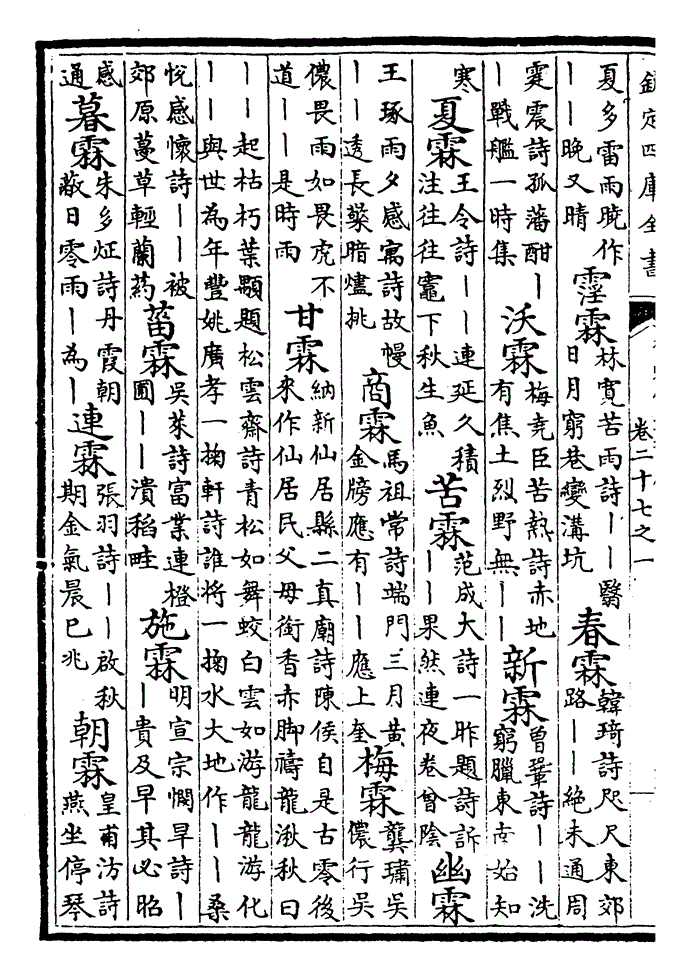 欽定四庫全書
卷二十七之一
夏多雷雨晩作
——晚又晴
霪霖
林寛苦雨詩——翳
日月窮巷變溝坑
春霖
韓琦詩咫尺東郊
路——絶未通周
霆震詩孤藩酣—
—戰艦一時集
沃霖
梅堯臣苦熱詩赤地
有焦土烈野無——
新霖
曾鞏詩——洗
窮臘東南始知
寒
夏霖
王令詩——連延久積
注往往竈下秋生魚
苦霖
范成大詩一昨題詩訴
——果然連夜卷曾陰
幽霖
王琢雨夕感寓詩故幔
——透長檠暗燼挑
商霖
馬祖常詩端門三月黄
金牓應有——應上奎
梅霖
龔璛吳
儂行吳
儂畏雨如畏虎不
道——是時雨
甘霖
納新仙居縣二真廟詩陳侯自是古零後
來作仙居民父母銜香赤脚禱龍湫秋日
——起枯朽葉顒題松雲齋詩青松如舞蛟白雲如游龍龍游化
——與世為年豐姚廣孝一掬軒詩誰將一掬水大地作——桑
悅感懷詩——被
郊原蔓草輕蘭葯
菑霖
吳萊詩富業連橙
圃——潰稻畦
施霖
明宣宗憫旱詩—
—貴及早其必昭
感
通
暮霖
朱多炡詩丹霞朝
蔽日零雨—為—
連霖
張羽詩——啟秋
期金氣晨已兆
朝霖
皇甫汸詩
燕坐停琴